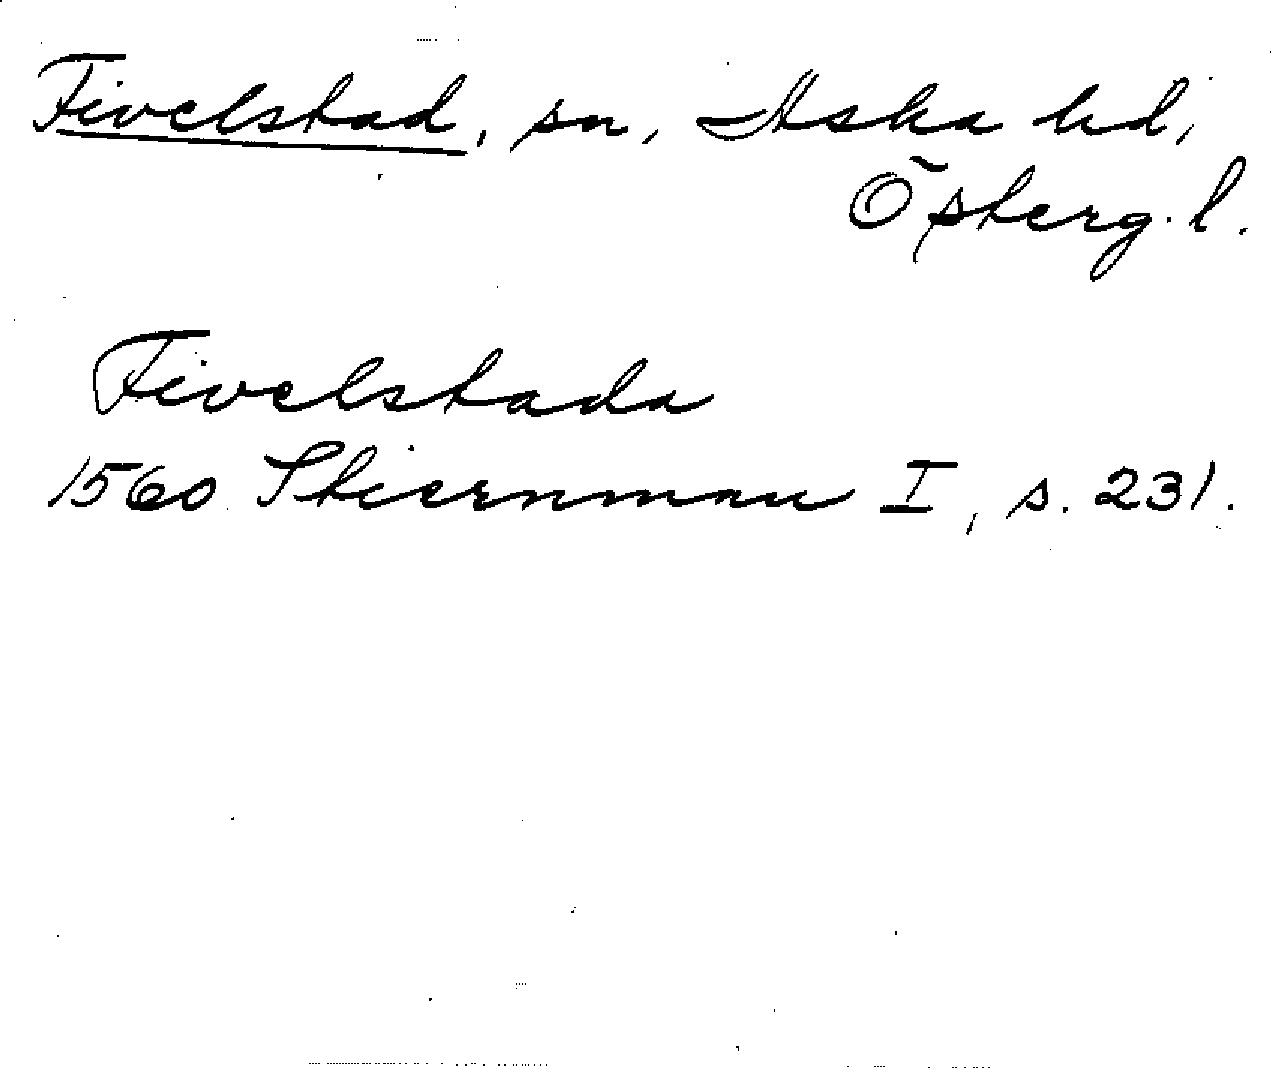 Fivelstad, sn, Aska hd,
Österg. l.
Fivelstada
1560 Stiernman I, s. 231.